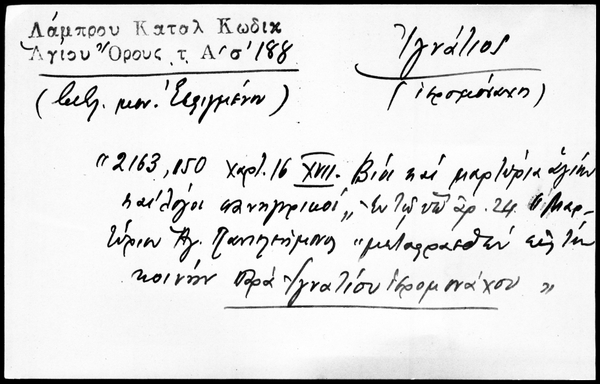 Λάμπρου Καταλ Κωδικ
Ἁγίου Ὄρους τ Α' σ' 188
Ἰγνάτιος
(Βιβλ. μον. Ἐσφιγμένου)
(ἱερομόναχος)
"2163, 150 χαρτ. 16 XVII. Βίοι καὶ μαρτύρια ἁγίων
καὶ λόγοι πανηγυρικοί" Ἐν τῷ ὑπ' ἀρ. 24 "Μαρ-
τύριον Ἁγ. Παντελεήμονος "μεταφρασθὲν εἰς τὴν
κοινὴν παρὰ Ἰγνατίου ἱερομονάχου"